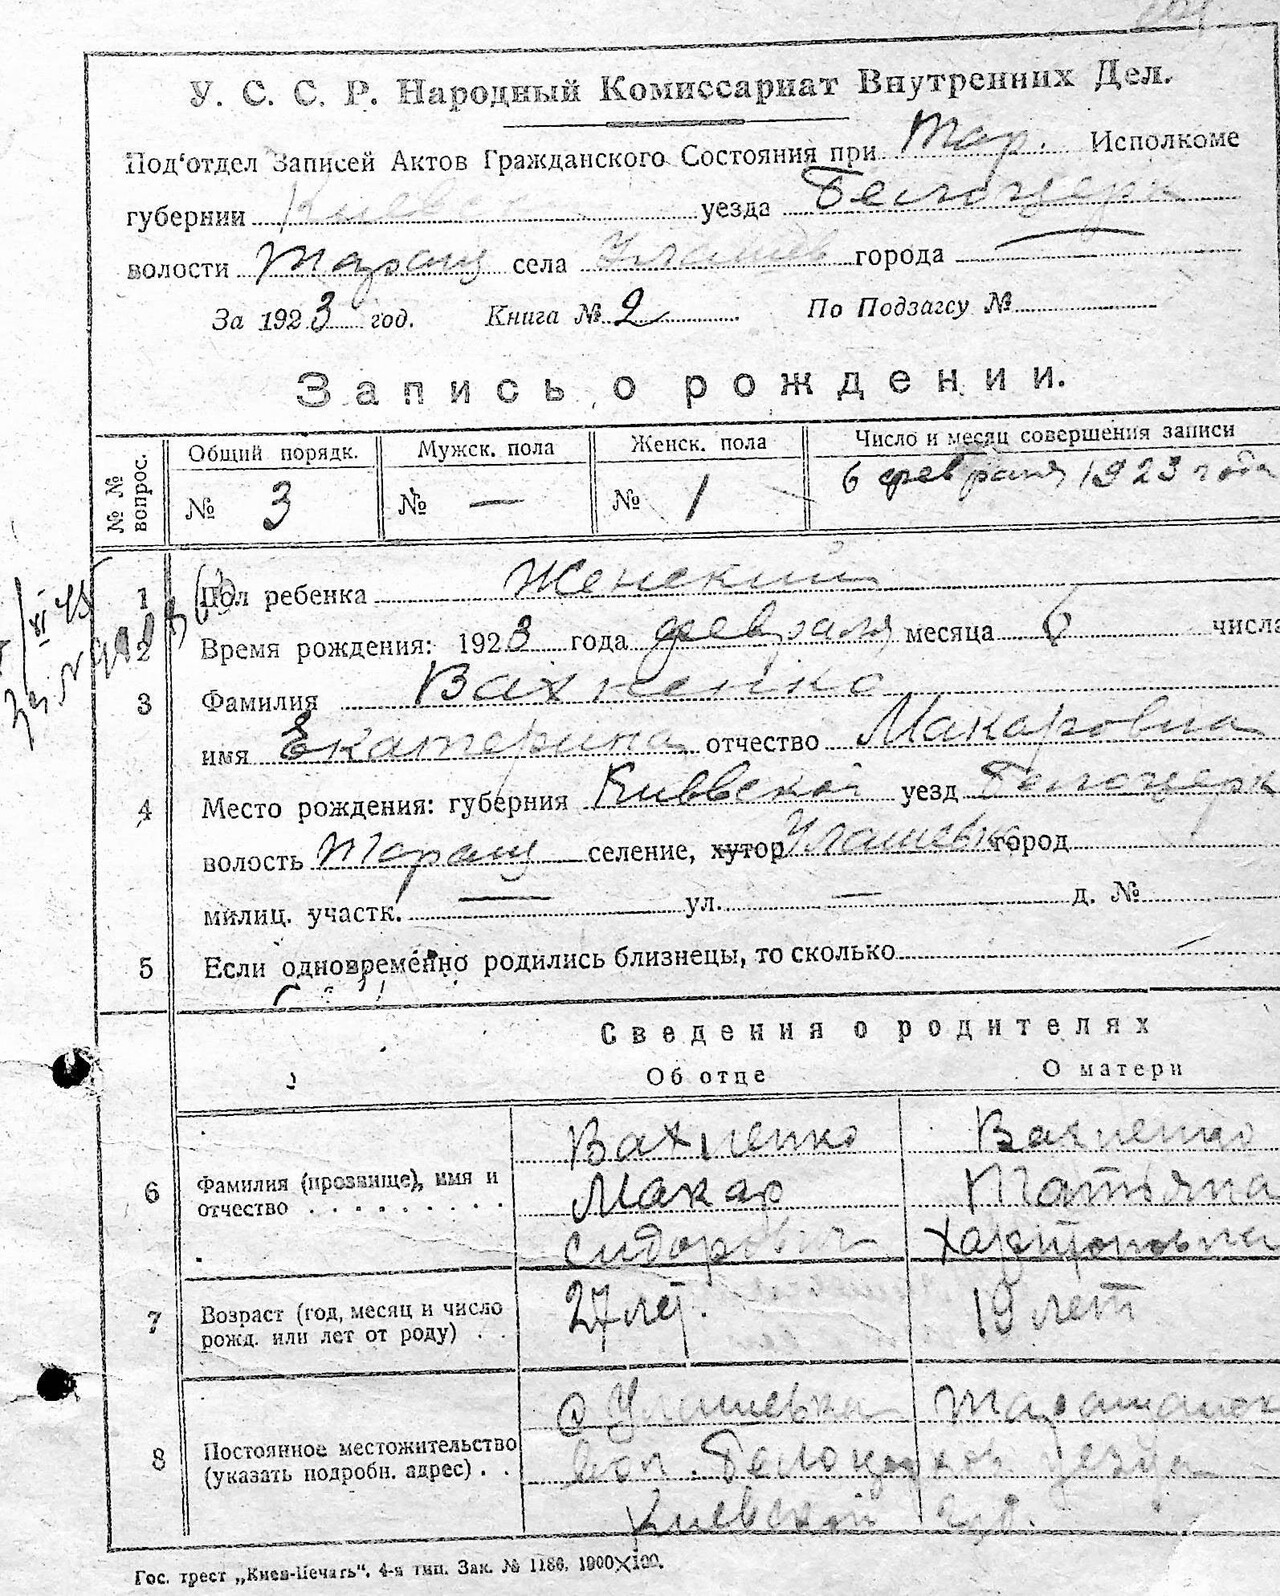 У. С. С. Р. Народный Комиссариат Внутренних Дел.
Под‘отдел Записей Актов Гражданского Состояния при Тар. Исполкоме
губернии Киевск уезда Белоцерк
волости Таращ села Улашев города —
За 1923 год. Книга № 2 По Подзагсу №
Запись о рождении.
№ № вопрос.
Общий порядк. Мужск. пола Женск. пола Число и месяц совершения записи
№ 3 № — № 1 6 февраля 1923 года
1 Пол ребенка Женский
2 Время рождения: 1923 года февраля месяца 6 числа
3 Фамилия Вахненко
имя Екатерина отчество Макаровна
4 Место рождения: губерния Киевской уезд Белоцерк
волость Таращ селение, хутор Улашевк город
милиц. участк. — ул. — д. №
5 Если одновременно родились близнецы, то сколько —
Сведения о родителях
Об отце О матери
6 Фамилия (прозвище), имя и отчество
Вахненко Вахненко
Макар Татіяна
Сидорович Харитоновна
7 Возраст (год, месяц и число рожд. или лет от роду)
27 лет. 19 лет
8 Постоянное местожительство (указать подробн. адрес)
с Улашевка Таращанск
вол. Белоцерков уезда
Киевской губ.
Гос. трест „Киев-Печать“. 4-я тип. Зак. № 1186. 1000×100.